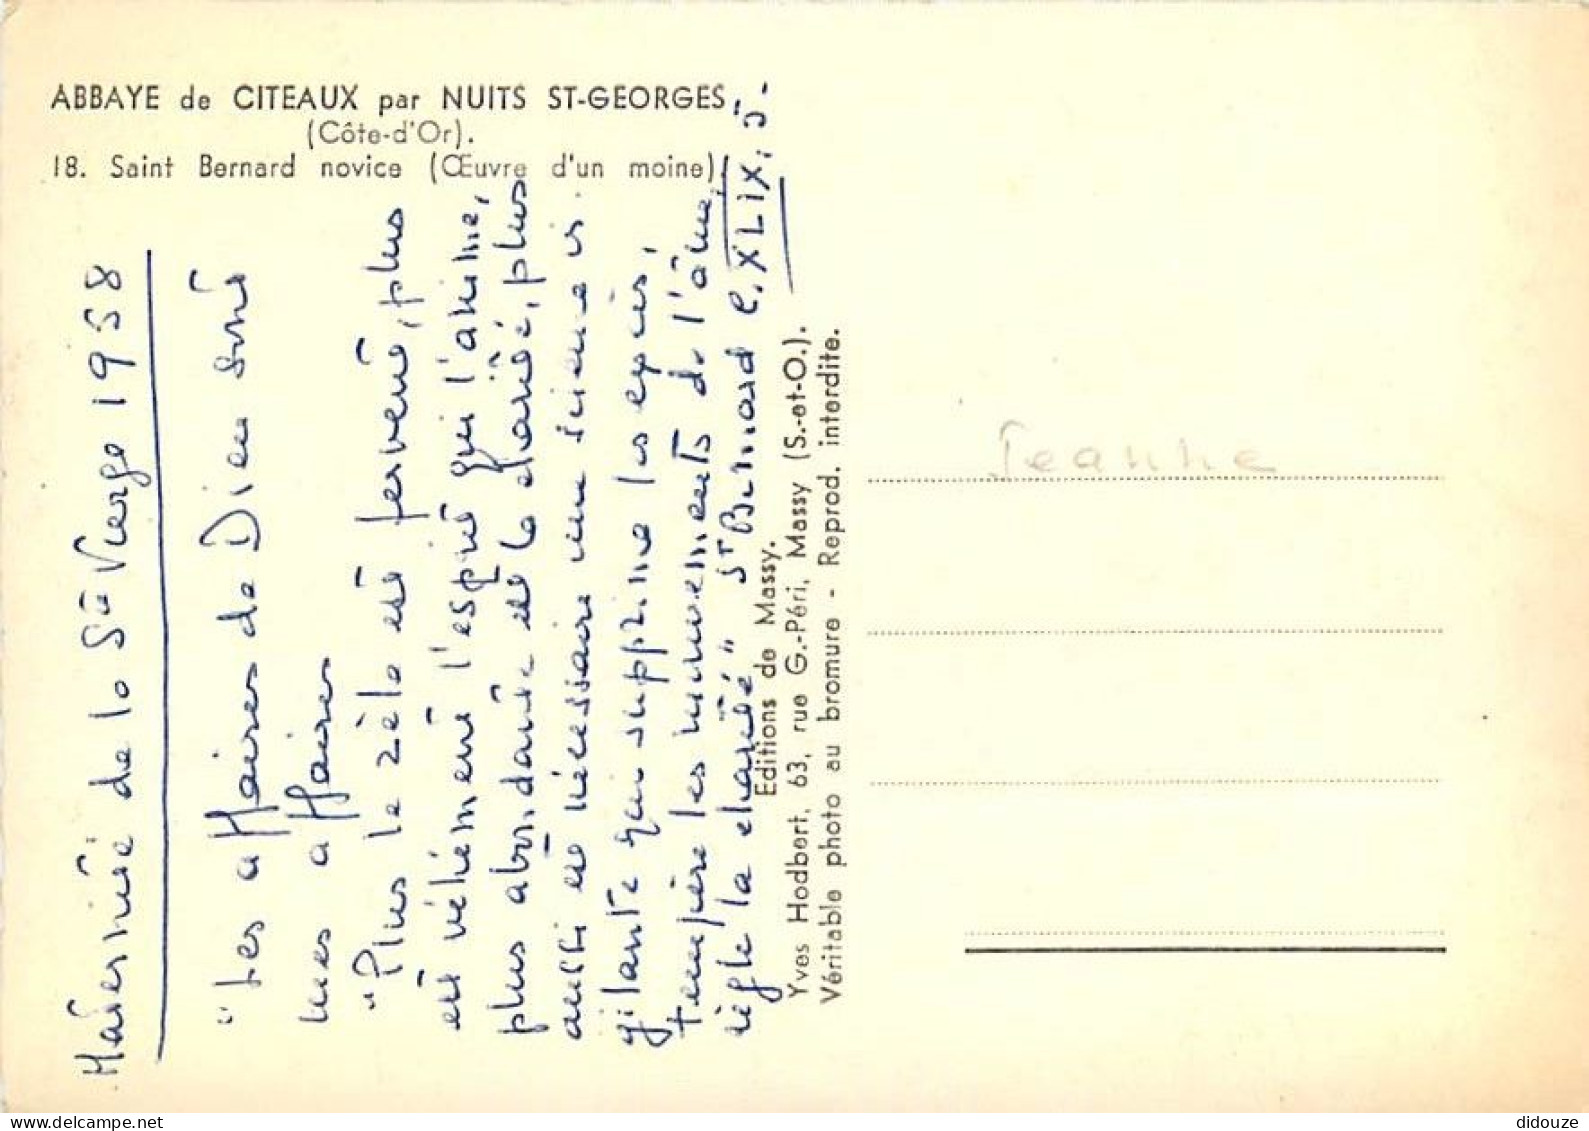 ABBAYE de CITEAUX par NUITS ST-GEORGES
(Côte-d'Or).
18. Saint Bernard novice (Œuvre d'un moine).
Maternité de la Ste Vierge 1958
"Les affaires de Dieu sont
mes affaires
"Plus le zèle est fervent, plus
est véhément l'esprit qui l'anime,
plus abondante est la charité, plus
aussi est nécessaire une science vi-
gilante qui supprime les excès,
tempère les mouvements de l'âme,
règle la charité" St Bernard C. XLIX. 5-
Editions de Massy.
Yves Hodbert, 63, rue G.-Péri, Massy (S.-et-O.).
Véritable photo au bromure - Reprod. interdite.
Jeanne
didouze